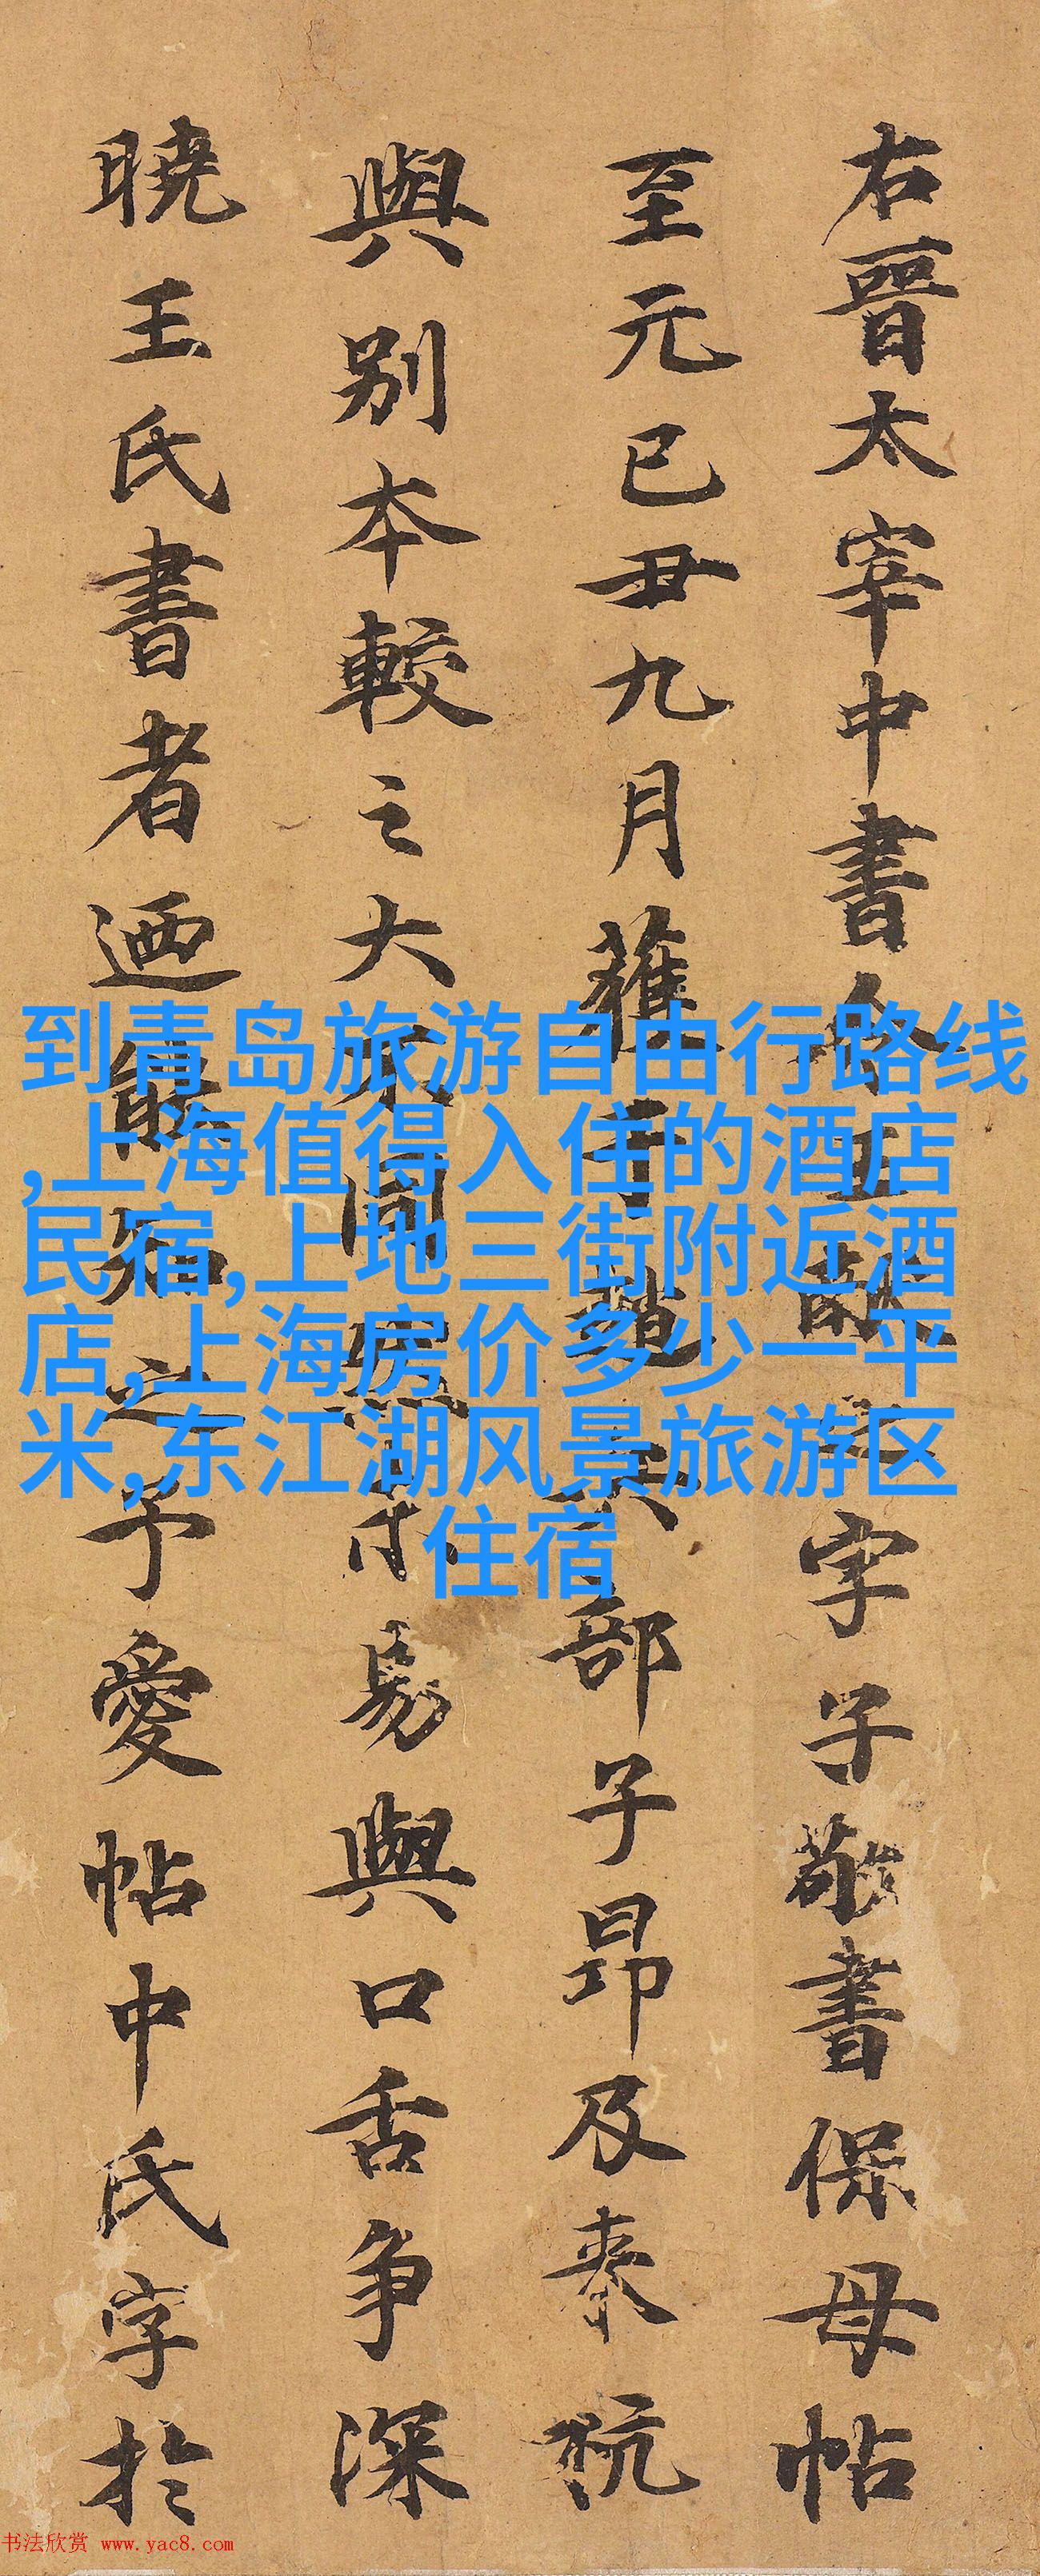 右晉太宰中書令王獻之字子敬書保母帖
至元己丑九月獲于趙兵部子昂及來杭
與别本較之大不同然未易與口舌争深
曉王氏書者迺能知之予愛帖中氏字於
到青岛旅游自由行路线
,上海值得入住的酒店
民宿,上地三街附近酒
店,上海房价多少一平
米,东江湖风景旅游区
住宿
书法欣赏 www.yac8.com